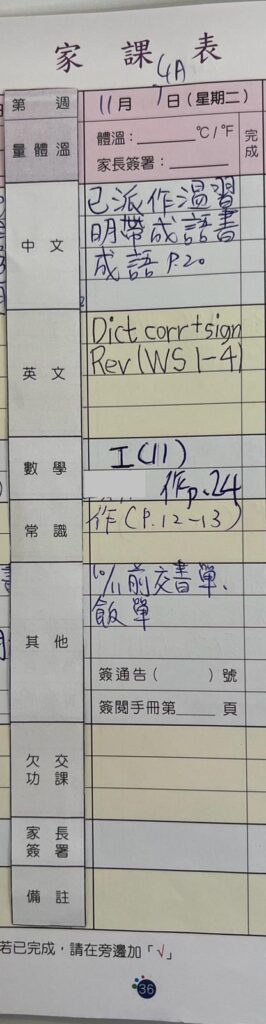 家課表
4A
第 週 11月7日(星期二)
量體溫 體溫:______℃/℉ 完成
家長簽署:______
中文 已派作溫習
明帶成語書
成語 P.20
英文 Dict corr+sign
Rev(WS 1-4)
數學 I(11)
作p.24
常識 作(P.12-13)
其他 10/11前交書單、
飯單
簽通告( )號
簽閱手冊第____頁
欠交功課
家長簽署
備註
若已完成,請在旁邊加「√」
36